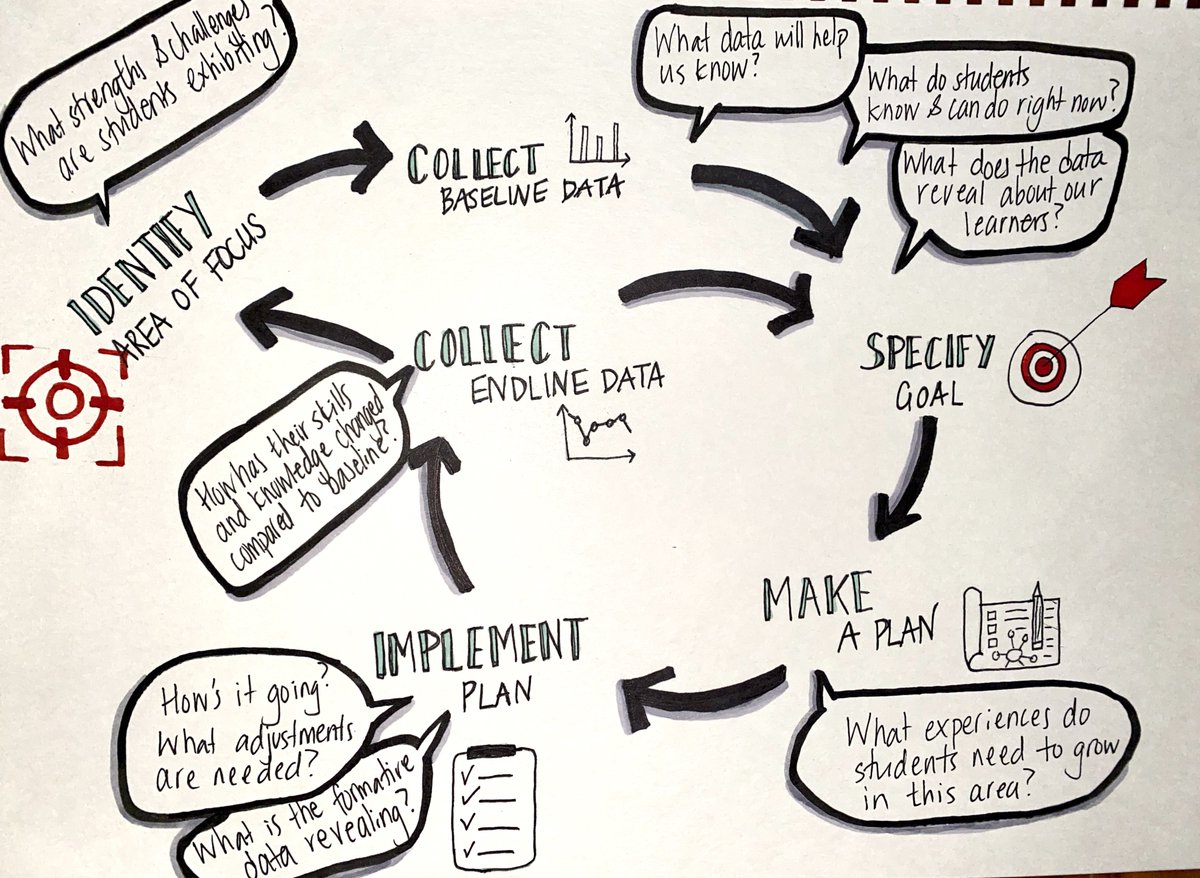 What strengths & challenges
are students exhibiting?
IDENTIFY
AREA OF FOCUS
COLLECT
BASELINE DATA
What data will help
us know?
What do students
know & can do right now?
What does the data
reveal about our
learners?
SPECIFY
GOAL
MAKE
A PLAN
What experiences do
students need to grow
in this area?
IMPLEMENT
PLAN
How's it going?
What adjustments
are needed?
What is the formative
data revealing?
COLLECT
ENDLINE DATA
How has their skills
and knowledge changed
compared to baseline?